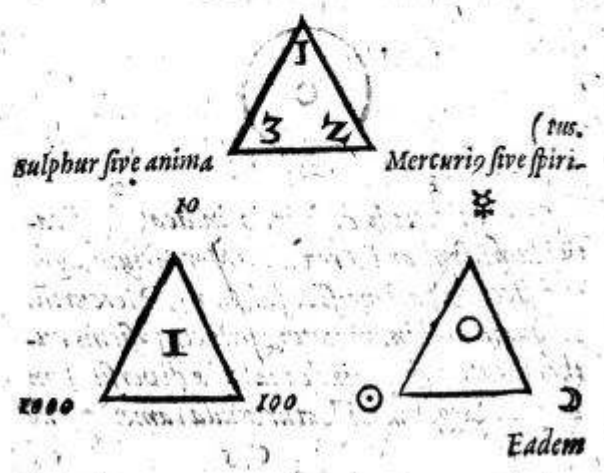 1
3 2
(tus.
Sulphur ſive anima Mercuriꝰ ſive ſpiri-
10 ☿
I
1000 100 ☉ ☽
Eadem